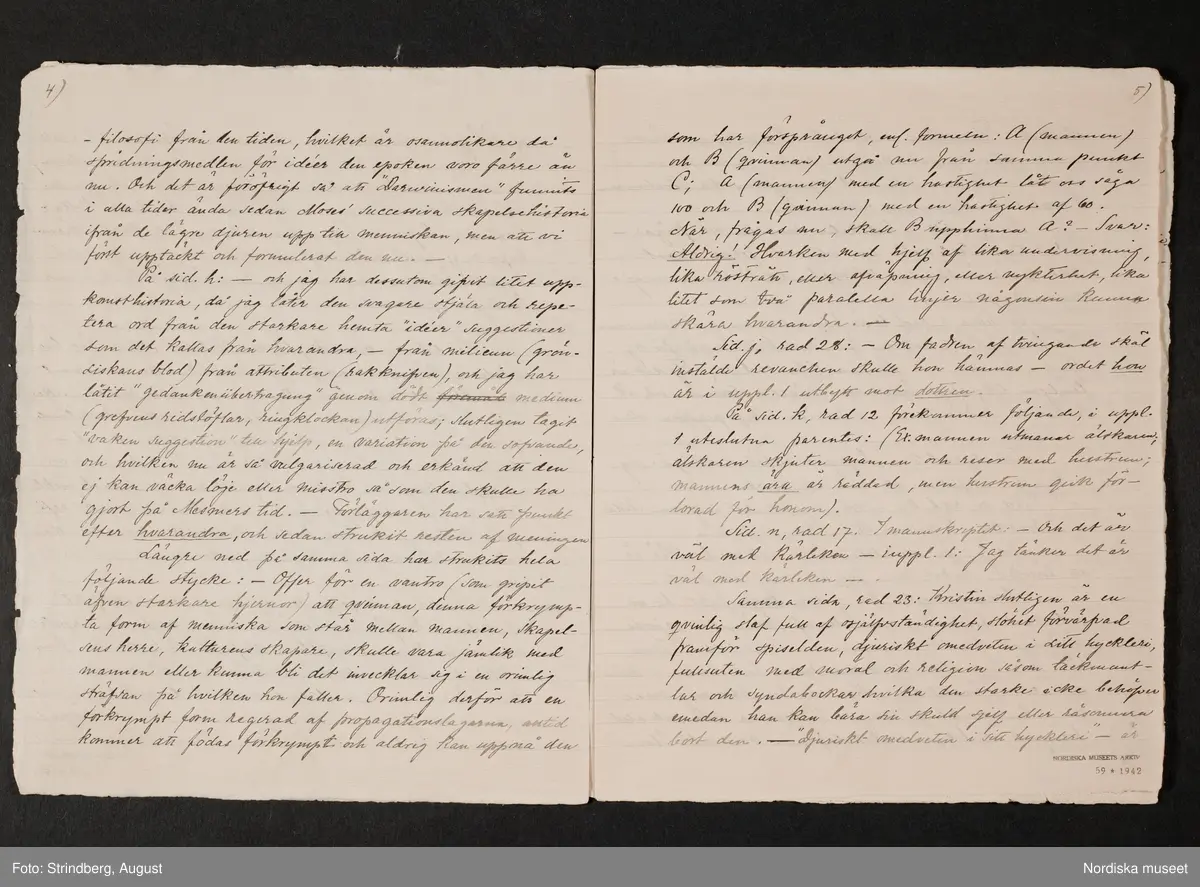 4)
- filosofi från den tiden, hvilket är osannolikare då
spridningsmedlen för idéer den epoken voro färre än
nu. Och det är föröfrigt så att "Darwinismen" funnits
i alla tider ända sedan Moses' successiva skapelsehistoria
ifrån de lägre djuren upp till menniskan, men att vi
först upptäckt och formulerat den nu. —
På sid. h: — och jag har dessutom gifvit litet upp-
konsthistoria, då jag låter den svagare stjäla och repe-
tera ord från den starkare hemta "idéer" suggestioner
som det kallas från hvarandra, — från milieun (grön-
siskans blod) från attributen (rakknifven), och jag har
låtit "gedankenübertragung" genom dödt föremål medium
(grefvens ridstöflar, ringklockan) utföras; slutligen taget
"vaken suggestion" till hjelp, en variation på den sofvande,
och hvilken nu är så vulgariserad och erkänd att den
ej kan väcka löje eller misstro så som den skulle ha
gjort på Mesmers tid. — Förläggaren har satt punkt
efter hvarandra, och sedan strukit resten af meningen
Längre ned på samma sida har strukits hela
följande stycke: — Offer för en vantro (som gripit
äfven starkare hjernor) att qvinnan, denna förkrymp-
ta form af menniska som står mellan mannen, skapel-
sens herre, kulturens skapare, skulle vara jämlik med
mannen eller kunna bli det invecklar sig i en orimlig
sträfvan på hvilken hon faller. Orimlig derför att en
förkrympt form regerad af propagationslagarna, alltid
kommer att födas förkrympt och aldrig kan uppnå den
5)
som har försprånget, enl. formeln: A (mannen)
och B (qvinnan) utgå nu från samma punkt
C; A (mannen) med en hastighet låt oss säga
100 och B (qvinnan) med en hastighet af 60.
När, frågas nu, skall B upphinna A? — Svar:
Aldrig! Hvarken med hjelp af lika undervisning,
lika rösträtt, eller afväpning, eller nykterhet, lika
litet som två paralella linjer någonsin kunna
skära hvarandra. —
Sid. j, rad 28: — Om fadren af tvingande skäl
inställde revanchen skulle hon hämnas — ordet hon
är i uppl. 1 utbytt mot dottren.
På sid. k, rad 12 förekommer följande, i uppl.
1 uteslutna parentes: (Ex. mannen utmanar älskaren;
älskaren skjuter mannen och reser med hustrun;
mannens ära är räddad, men hustrun gick för-
lorad för honom).
Sid. n, rad 17. I manuskriptet: — Och det är
väl med kärleken — i uppl. 1: Jag tänker det är
väl med kärleken — .
Samma sida, rad 23: Kristin slutligen är en
qvinlig slaf full af osjälfständighet, slöhet förvärfvad
framför spiseln, djuriskt omedveten i sitt hyckleri,
fullsuten med moral och religion såsom täckmant-
lar och syndabockar hvilka den starke icke behöfver
emedan han kan bära sin skuld sjelf eller räsonnera
bort den. — "Djuriskt omedveten i sitt hyckleri" — är
NORDISKA MUSEETS ARKIV
59 * 1942
Foto: Strindberg, August
Nordiska museet